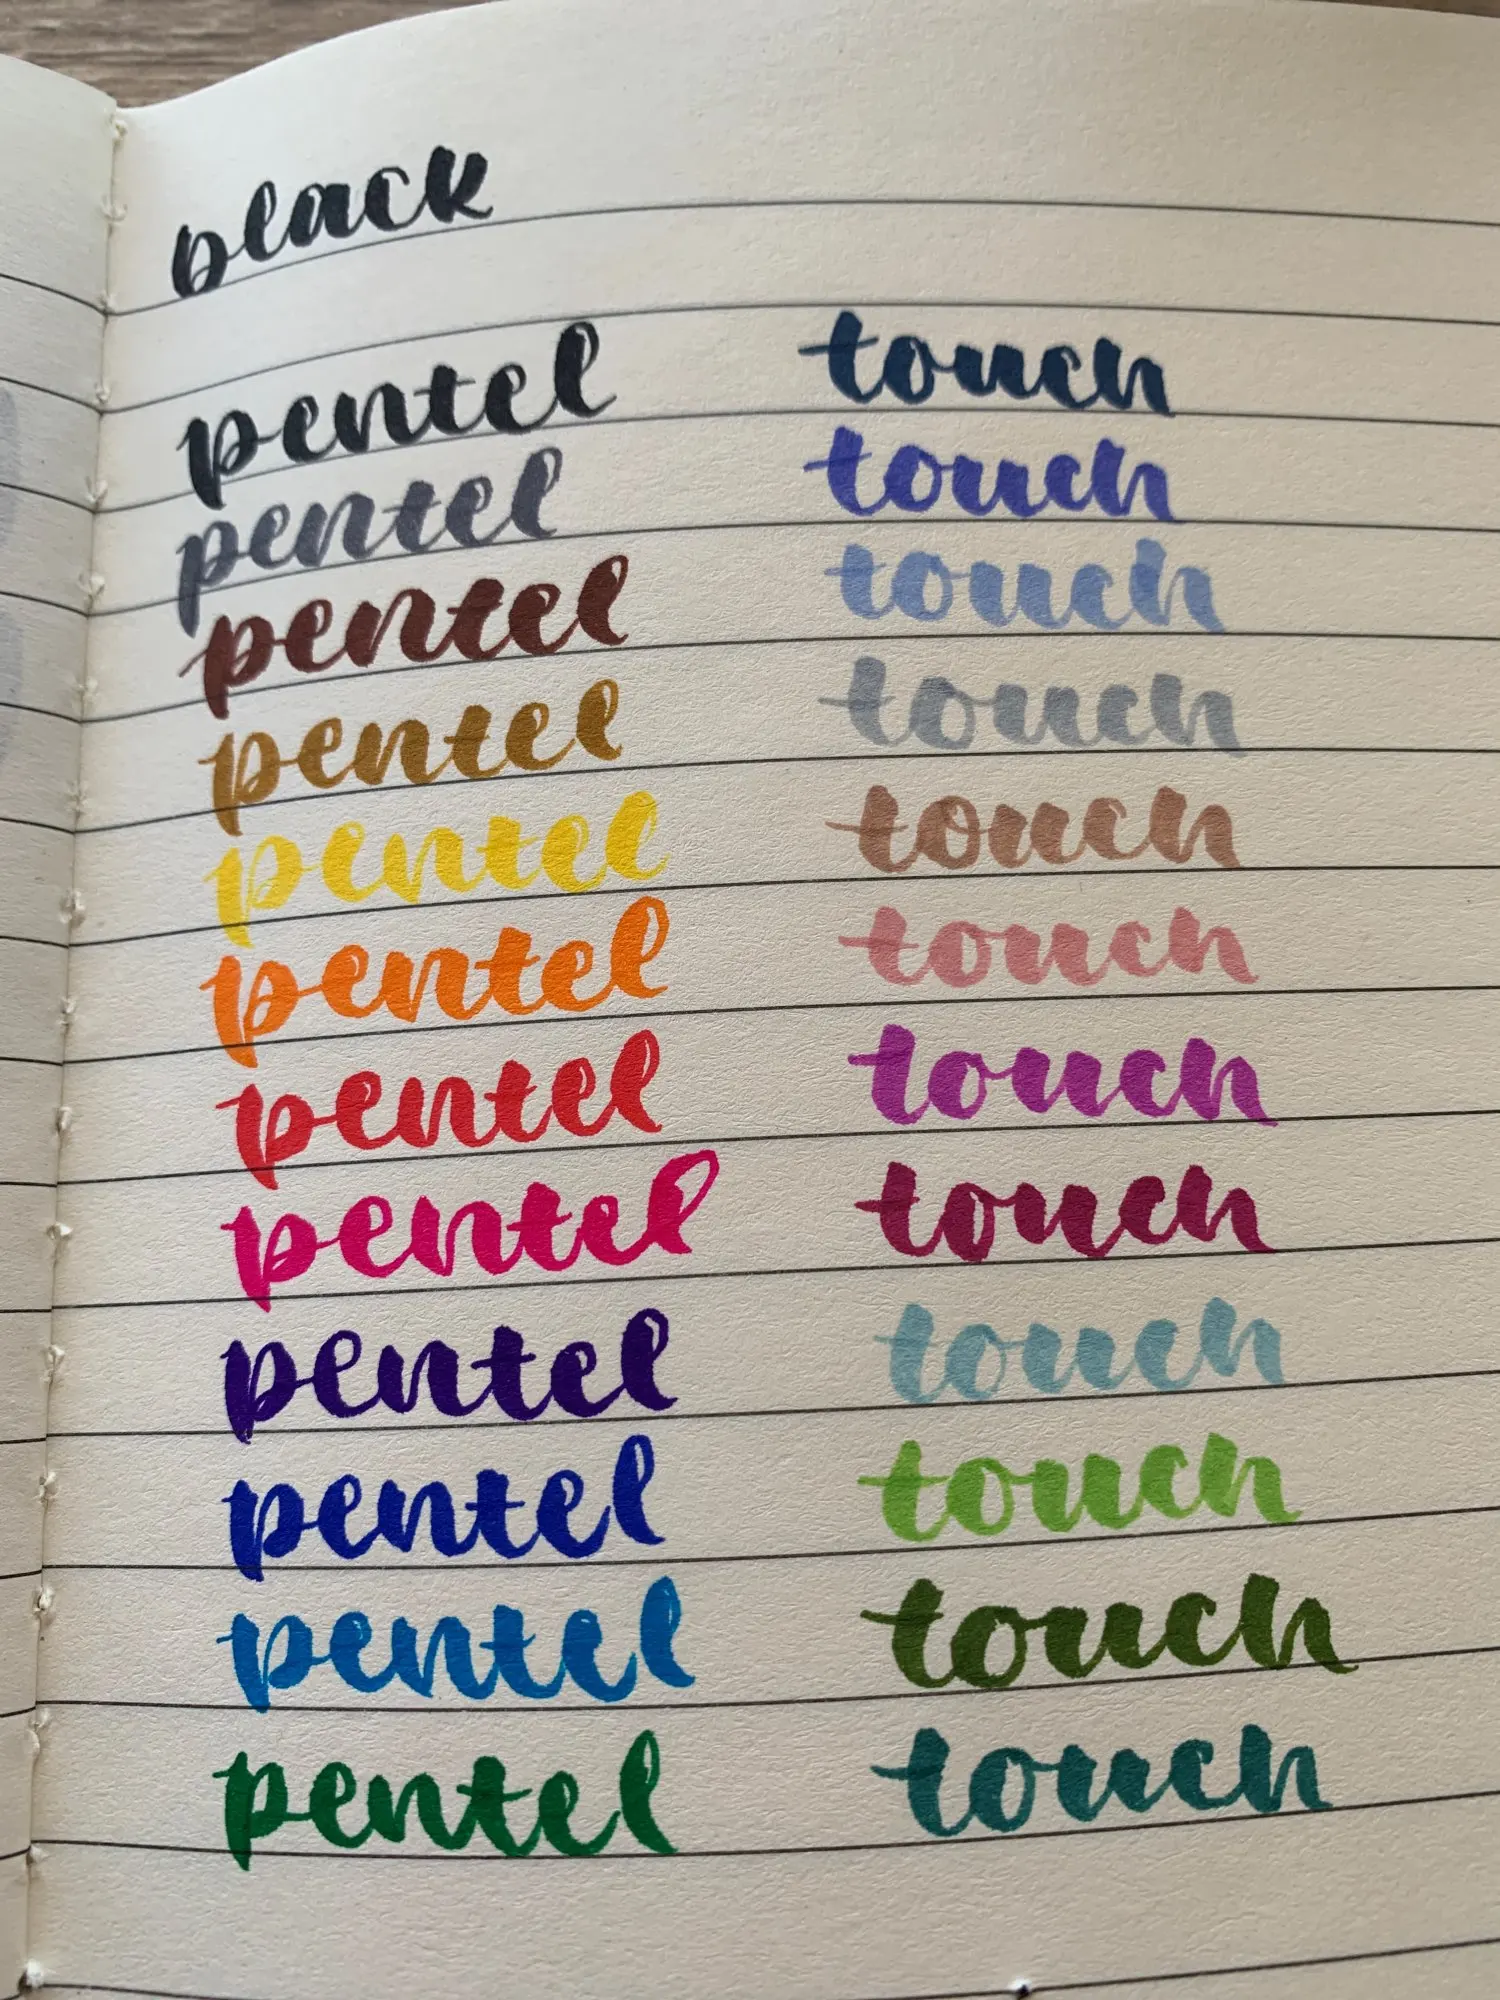 black
pentel touch
pentel touch
pentel touch
pentel touch
pentel touch
pentel touch
pentel touch
pentel touch
pentel touch
pentel touch
pentel touch
pentel touch